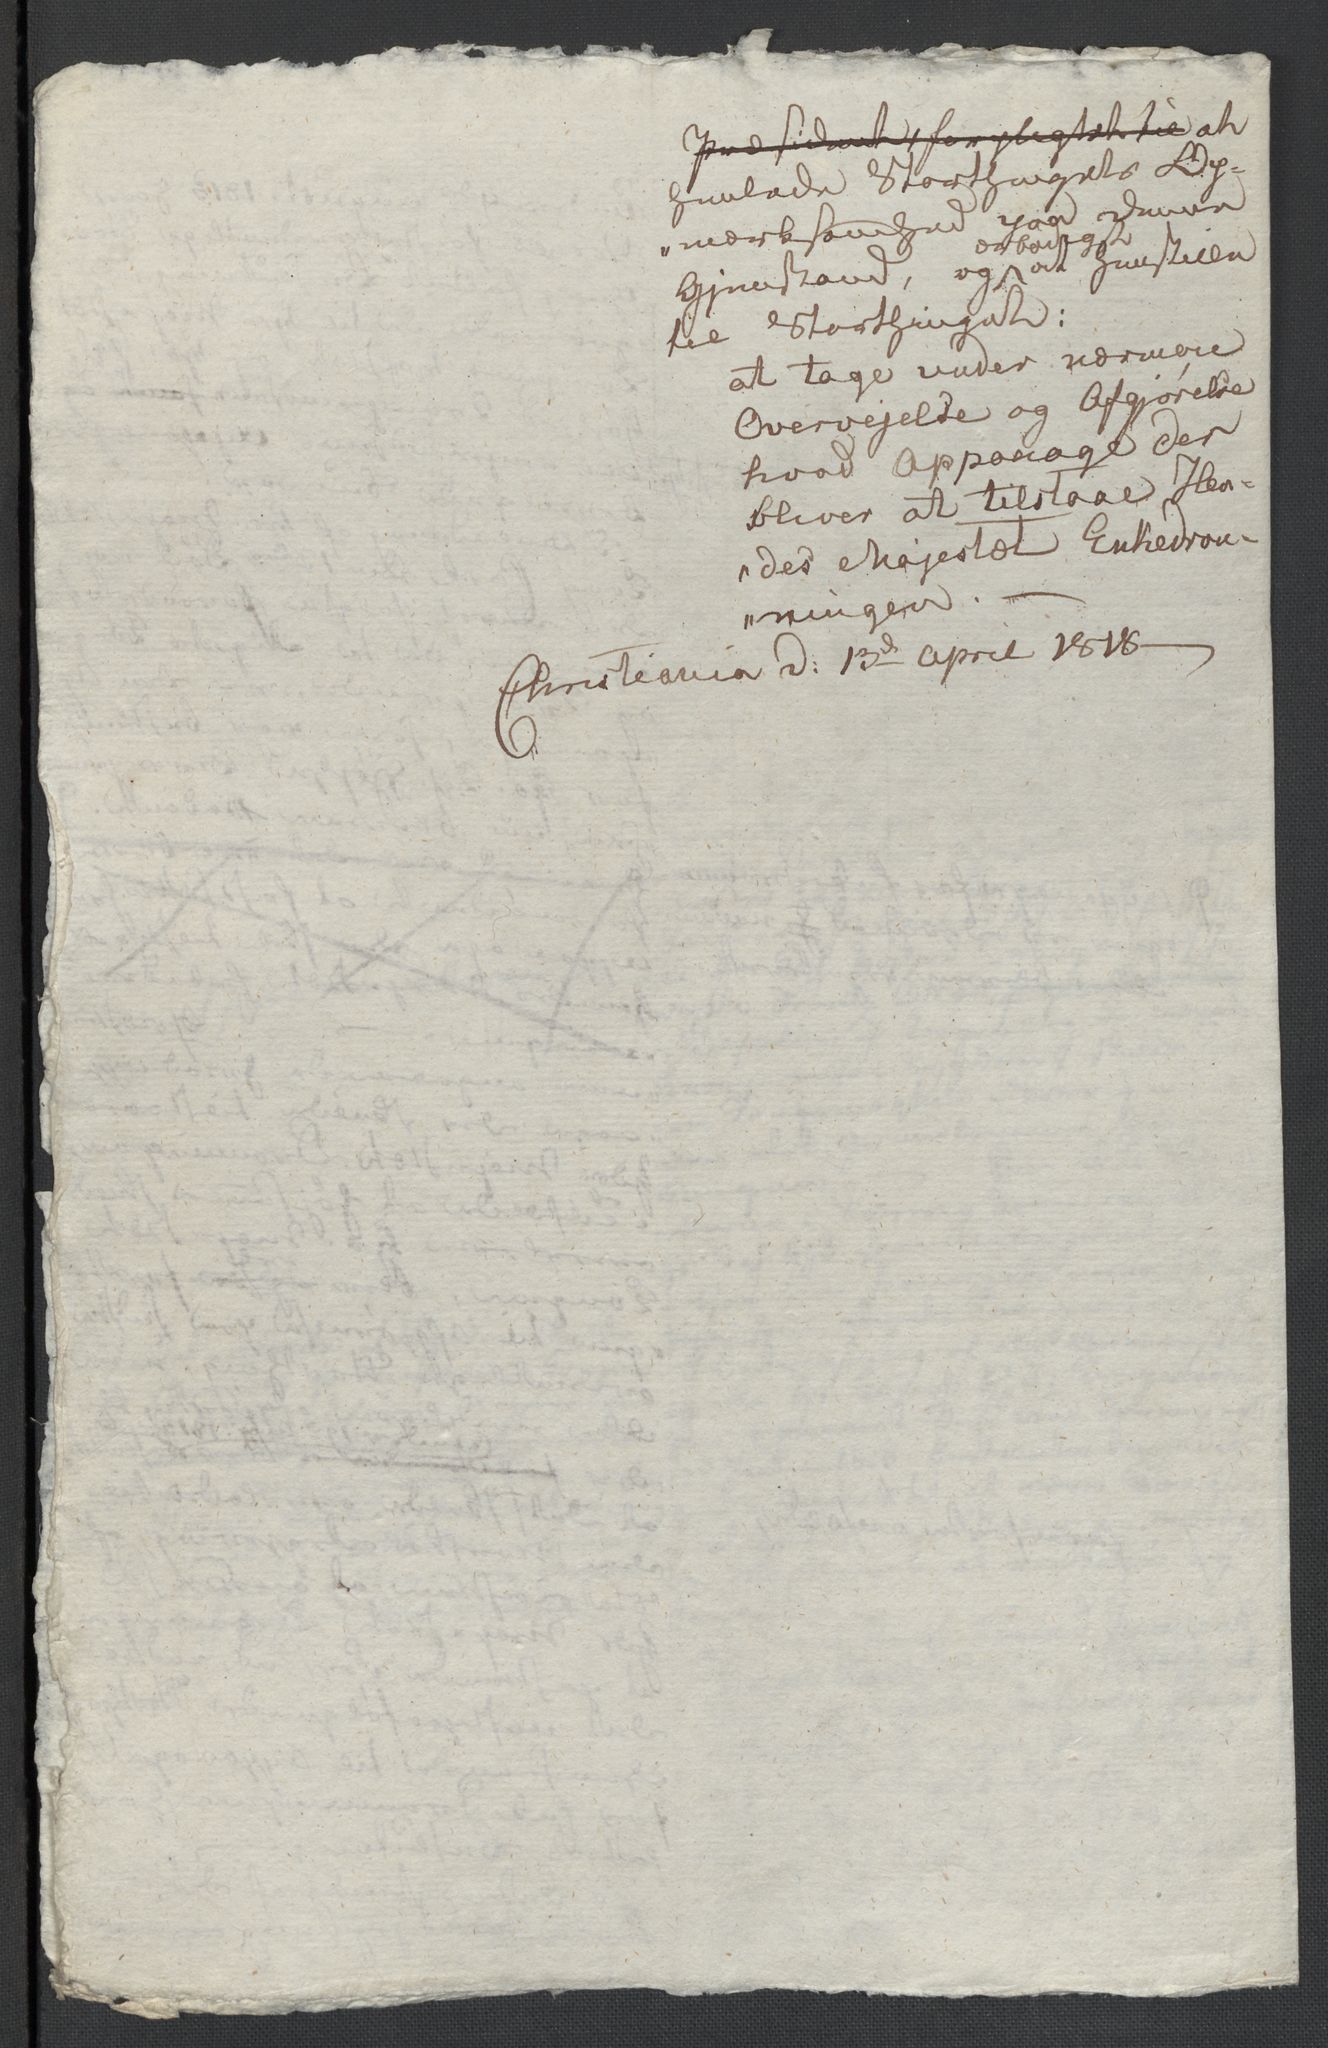 Præsident, forpligtet til at
henlede Storthingets Op-
"mærksomhed paa denne
ærbødigst
Gjenstand, og at henstille
til Storthinget:
at tage under nærmere
Overvejelse og Afgjørelse
hvad Appanage der
bliver at tilstaae Hen-
"des Majestæt Enkedron-
"ningen. —
Christiania d: 13de April 1818